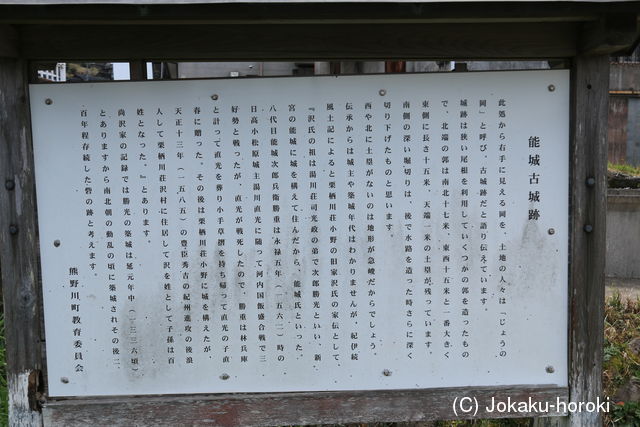 能城古城跡
此処から右手に見える岡を、土地の人々は「じょうの
岡」と呼び、古城跡だと語り伝えています。
城跡は狭い尾根を利用していくつかの郭を造ったもの
で、北端の郭は南北十七米、東西十五米と一番大きく
東側に長さ十五米、天端一米の土塁が残っています。
南側の深い堀切りは、後で水路を造った時さらに深く
切り下げたものと思います。
西や北に土塁がないのは地形が急峻だからでしょう。
伝承からは城主や築城年代はわかりませんが、紀伊続
風土記によると栗栖川荘小野の旧家沢氏の家伝として
『沢氏の祖は湯川荘司光政の弟で次郎勝光といい、新
宮の能城に城を構えて住んだから、能城氏といった。
八代目能城次郎兵衛勝重は永禄五年(一五六二)時の
日高小松原城主湯川直光に随って河内国飯盛合戦で三
好勢と戦ったが、直光が戦死したので、勝重は林兵庫
と計って直光を葬り小手草摺を持ち帰って直光の子直
春に贈った。その後は栗栖川荘小野に城を構えたが、
天正十三年(一五八五)の豊臣秀吉の紀州進攻の後浪
人して栗栖川荘沢村に住居して沢を姓として子孫は百
姓となった。』とあります。
尚沢家の記録では勝光の築城は延元年中(一三三六頃)
とありますから南北朝の動乱の頃に築城されその後二
百年程存続した砦の跡と考えます。
熊野川町教育委員会
(C) Jokaku-horoki